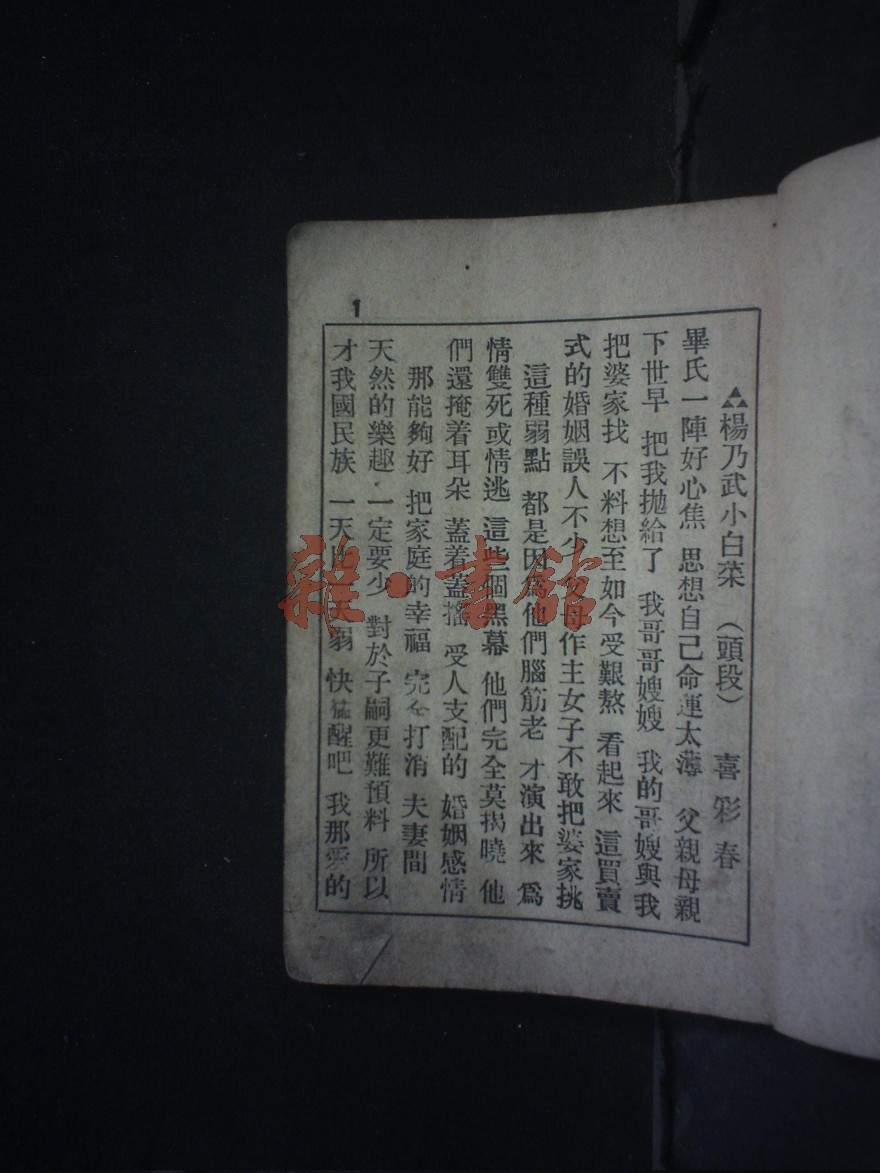 ▲楊乃武小白菜 （頭段） 喜彩春
畢氏一陣好心焦 思想自己命運太薄 父親母親
下世早 把我拋給了 我哥哥嫂嫂 我的哥嫂與我
把婆家找 不料想至如今受艱熬 看起來 這買賣
式的婚姻誤人不少 父母作主女子不敢把婆家挑
這種弱點 都是因爲他們腦筋老 才演出來 爲
情雙死或情逃 這些個黑幕 他們完全莫揭曉 他
們還掩着耳朵 蓋着蓋搖 受人支配的 婚姻感情
那能夠好 把家庭的幸福 完全打消 夫妻間
天然的樂趣 一定要少 對於子嗣更難預料 所以
才我國民族 一天比一天弱 快猛醒吧 我那愛的
1
雜·書館